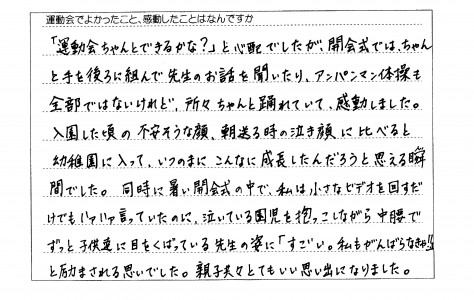 運動会でよかったこと、感動したことはなんですか
「運動会ちゃんとできるかな?」と心配でしたが、開会式では、ちゃん
と手を後ろに組んで先生のお話を聞いたり、アンパンマン体操も
全部ではないけれど、所々ちゃんと踊れていて、感動しました。
入園した頃の不安そうな顔、朝送る時の泣き顔に比べると
幼稚園に入って、いつのまにこんなに成長したんだろうと思える瞬
間でした。同時に暑い開会式の中で、私は小さなビデオを回すだ
けでもハァハァ言っていたのに、泣いている園児を抱っこしながら中腰で
ずっと子供達に目をくばっている先生の姿に「すごい。私もがんばらなきゃ!!」
と励まされる思いでした。親子共々とてもいい思い出になりました。